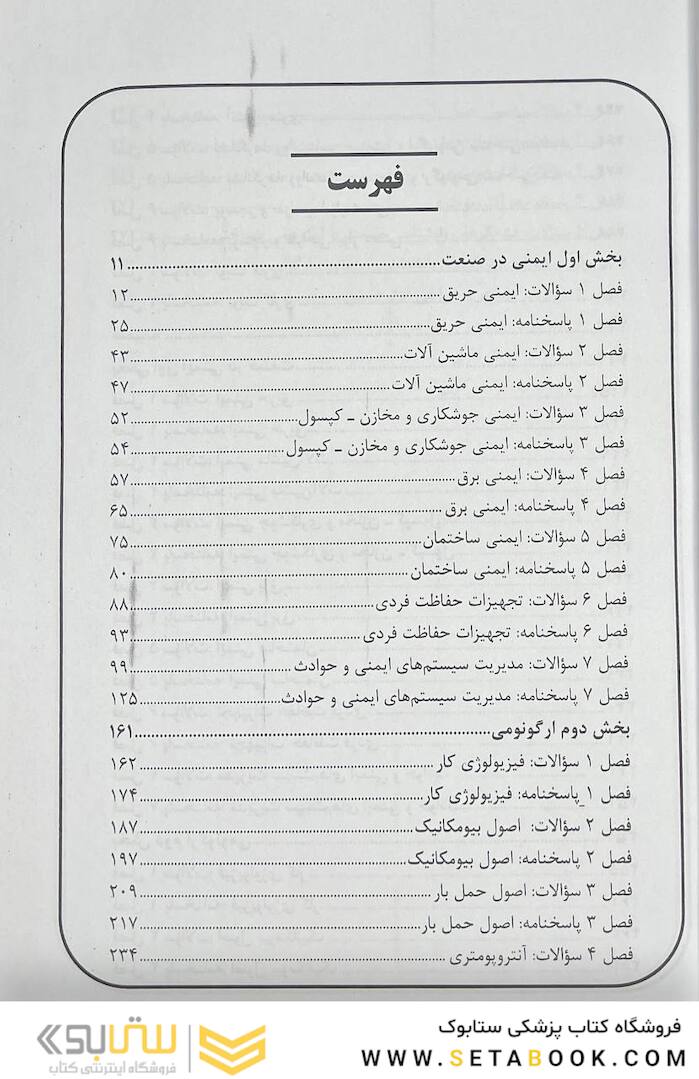 فهرست
بخش اول ایمنی در صنعت......۱۱
فصل ۱ سؤالات: ایمنی حریق......۱۲
فصل ۱ پاسخنامه: ایمنی حریق......۲۵
فصل ۲ سؤالات: ایمنی ماشین آلات......۴۳
فصل ۲ پاسخنامه: ایمنی ماشین آلات......۴۷
فصل ۳ سؤالات: ایمنی جوشکاری و مخازن ـ کپسول......۵۲
فصل ۳ پاسخنامه: ایمنی جوشکاری و مخازن ـ کپسول......۵۴
فصل ۴ سؤالات: ایمنی برق......۵۷
فصل ۴ پاسخنامه: ایمنی برق......۶۵
فصل ۵ سؤالات: ایمنی ساختمان......۷۵
فصل ۵ پاسخنامه: ایمنی ساختمان......۸۰
فصل ۶ سؤالات: تجهیزات حفاظت فردی......۸۸
فصل ۶ پاسخنامه: تجهیزات حفاظت فردی......۹۳
فصل ۷ سؤالات: مدیریت سیستم‌های ایمنی و حوادث......۹۹
فصل ۷ پاسخنامه: مدیریت سیستم‌های ایمنی و حوادث......۱۲۵
بخش دوم ارگونومی......۱۶۱
فصل ۱ سؤالات: فیزیولوژی کار......۱۶۲
فصل ۱ پاسخنامه: فیزیولوژی کار......۱۷۴
فصل ۲ سؤالات: اصول بیومکانیک......۱۸۷
فصل ۲ پاسخنامه: اصول بیومکانیک......۱۹۷
فصل ۳ سؤالات: اصول حمل بار......۲۰۹
فصل ۳ پاسخنامه: اصول حمل بار......۲۱۷
فصل ۴ سؤالات: آنتروپومتری......۲۳۴
فروشگاه کتاب پزشکی ستابوک
WWW.SETABOOK.COM
ستابوک
فروشگاه اینترنتی کتاب